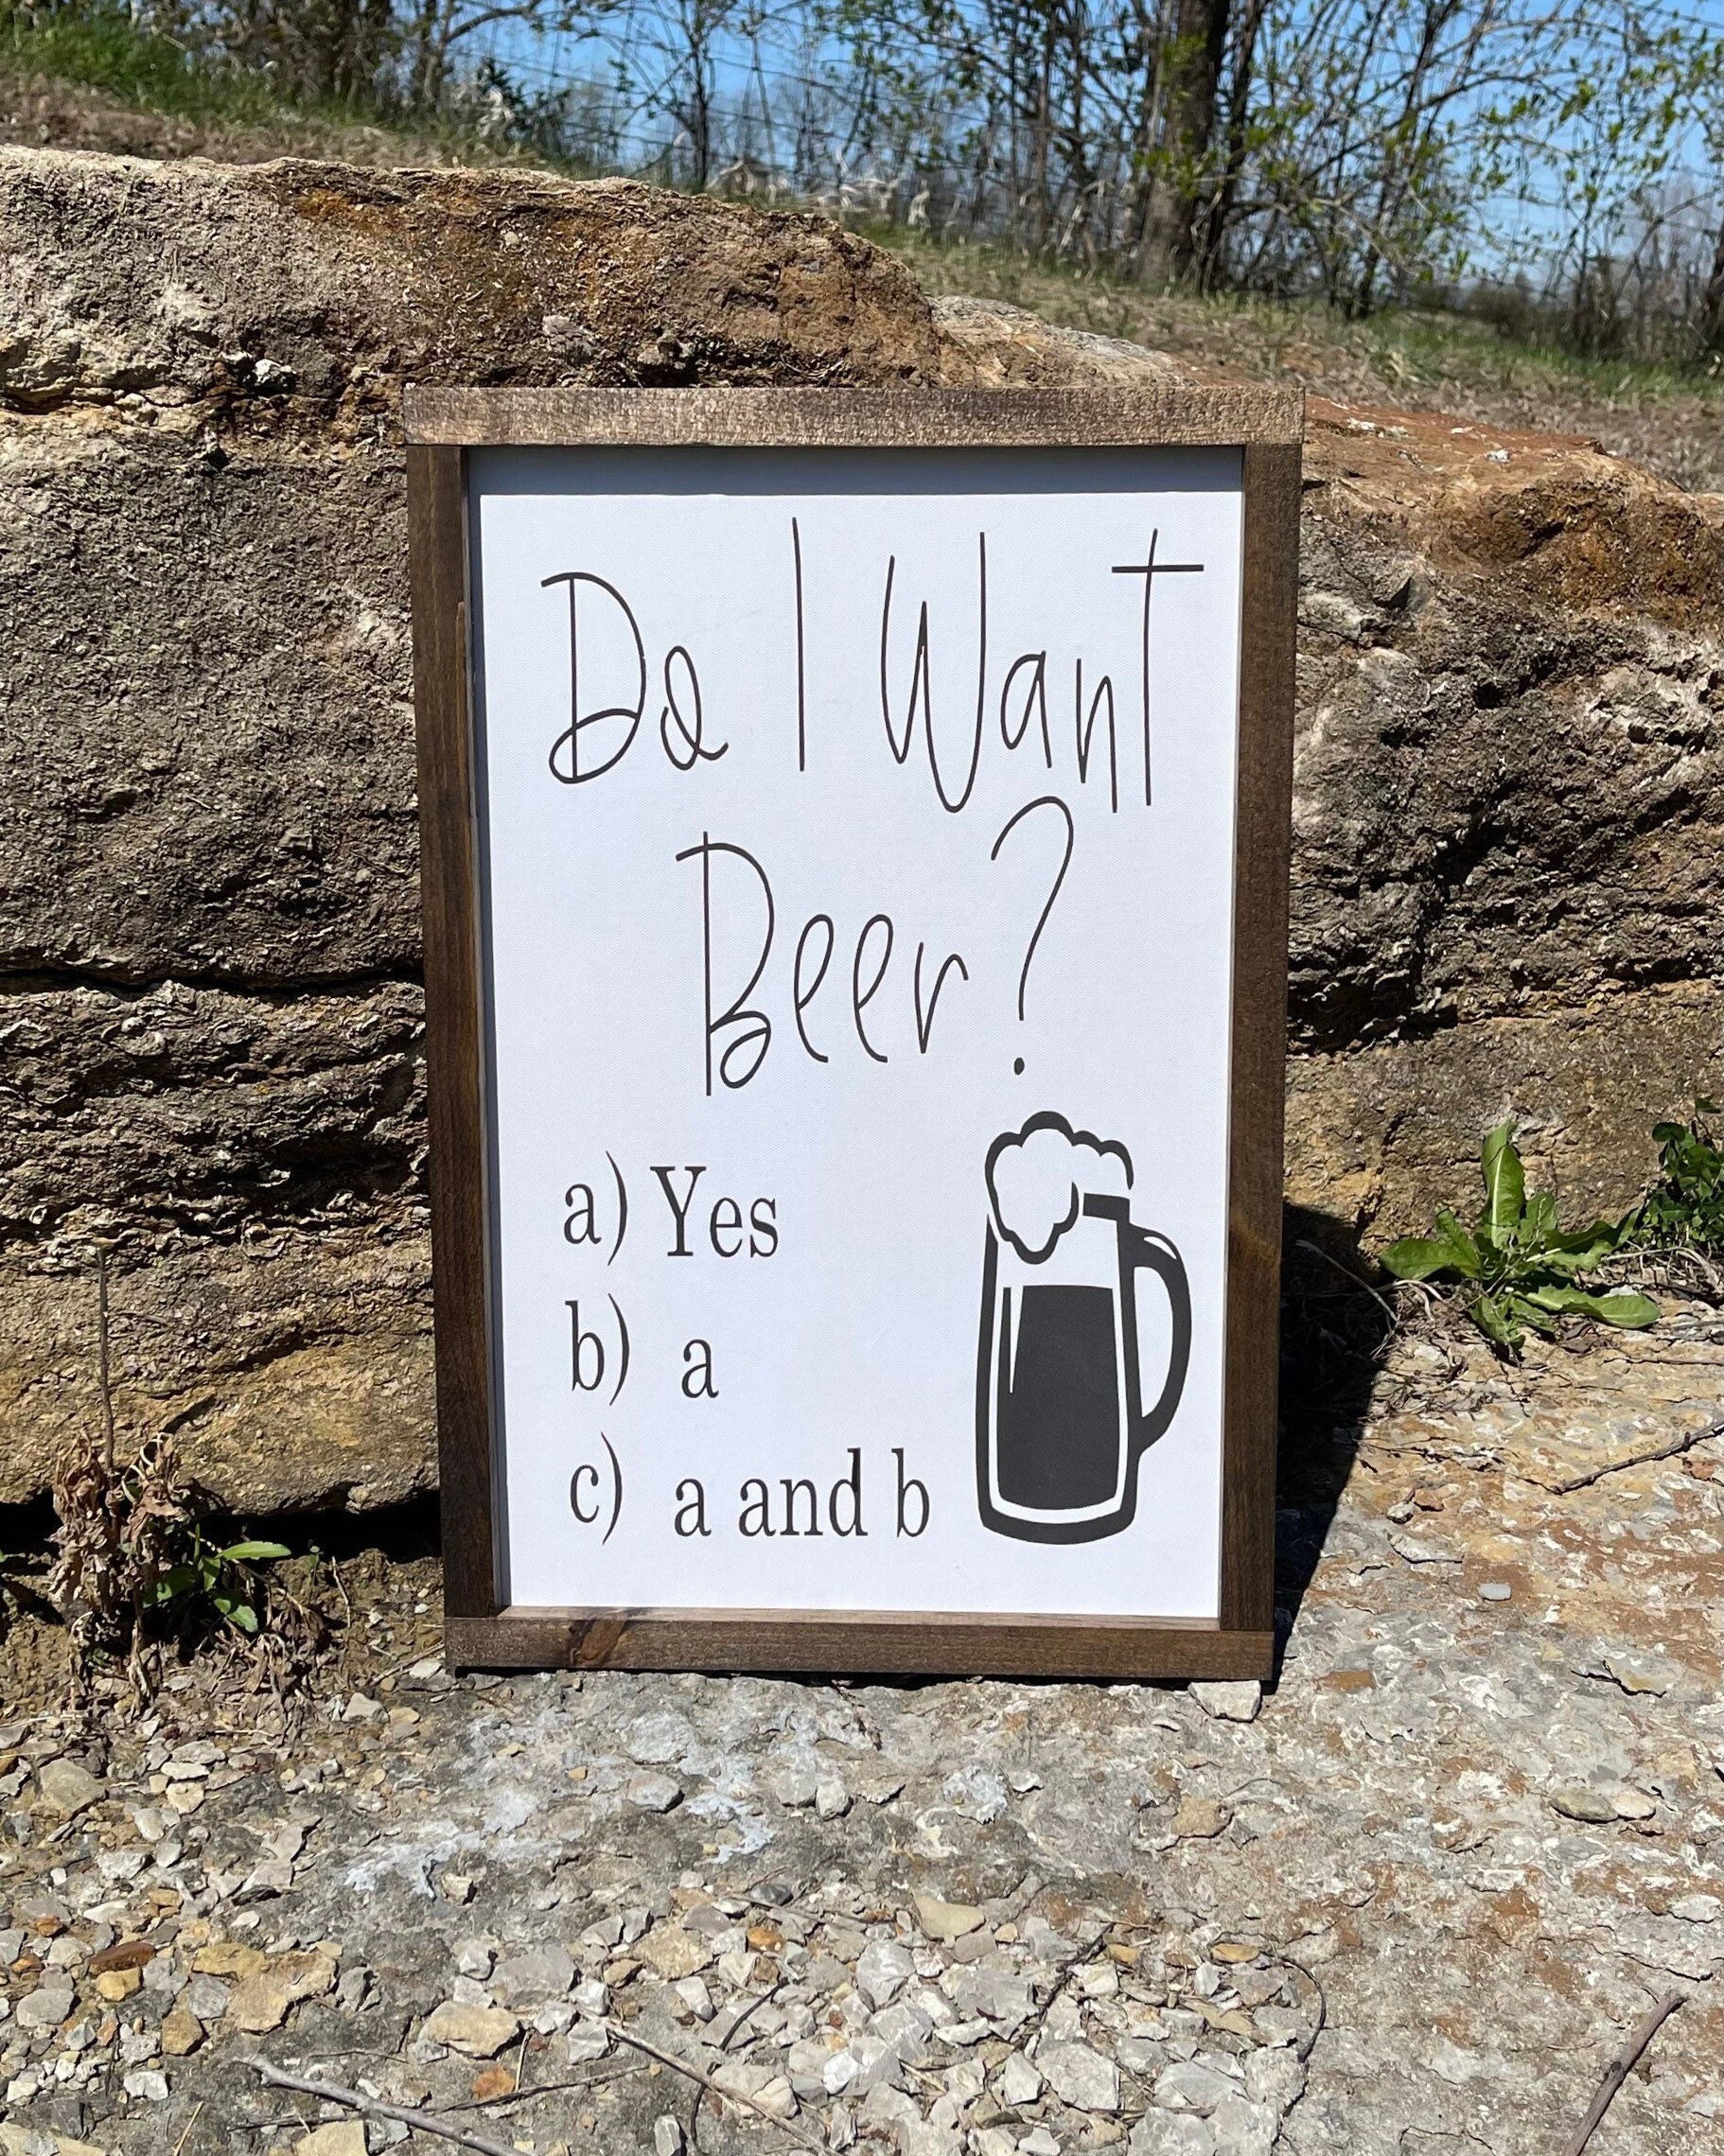 Do I Want
Beer?
a) Yes
b) a
c) a and b